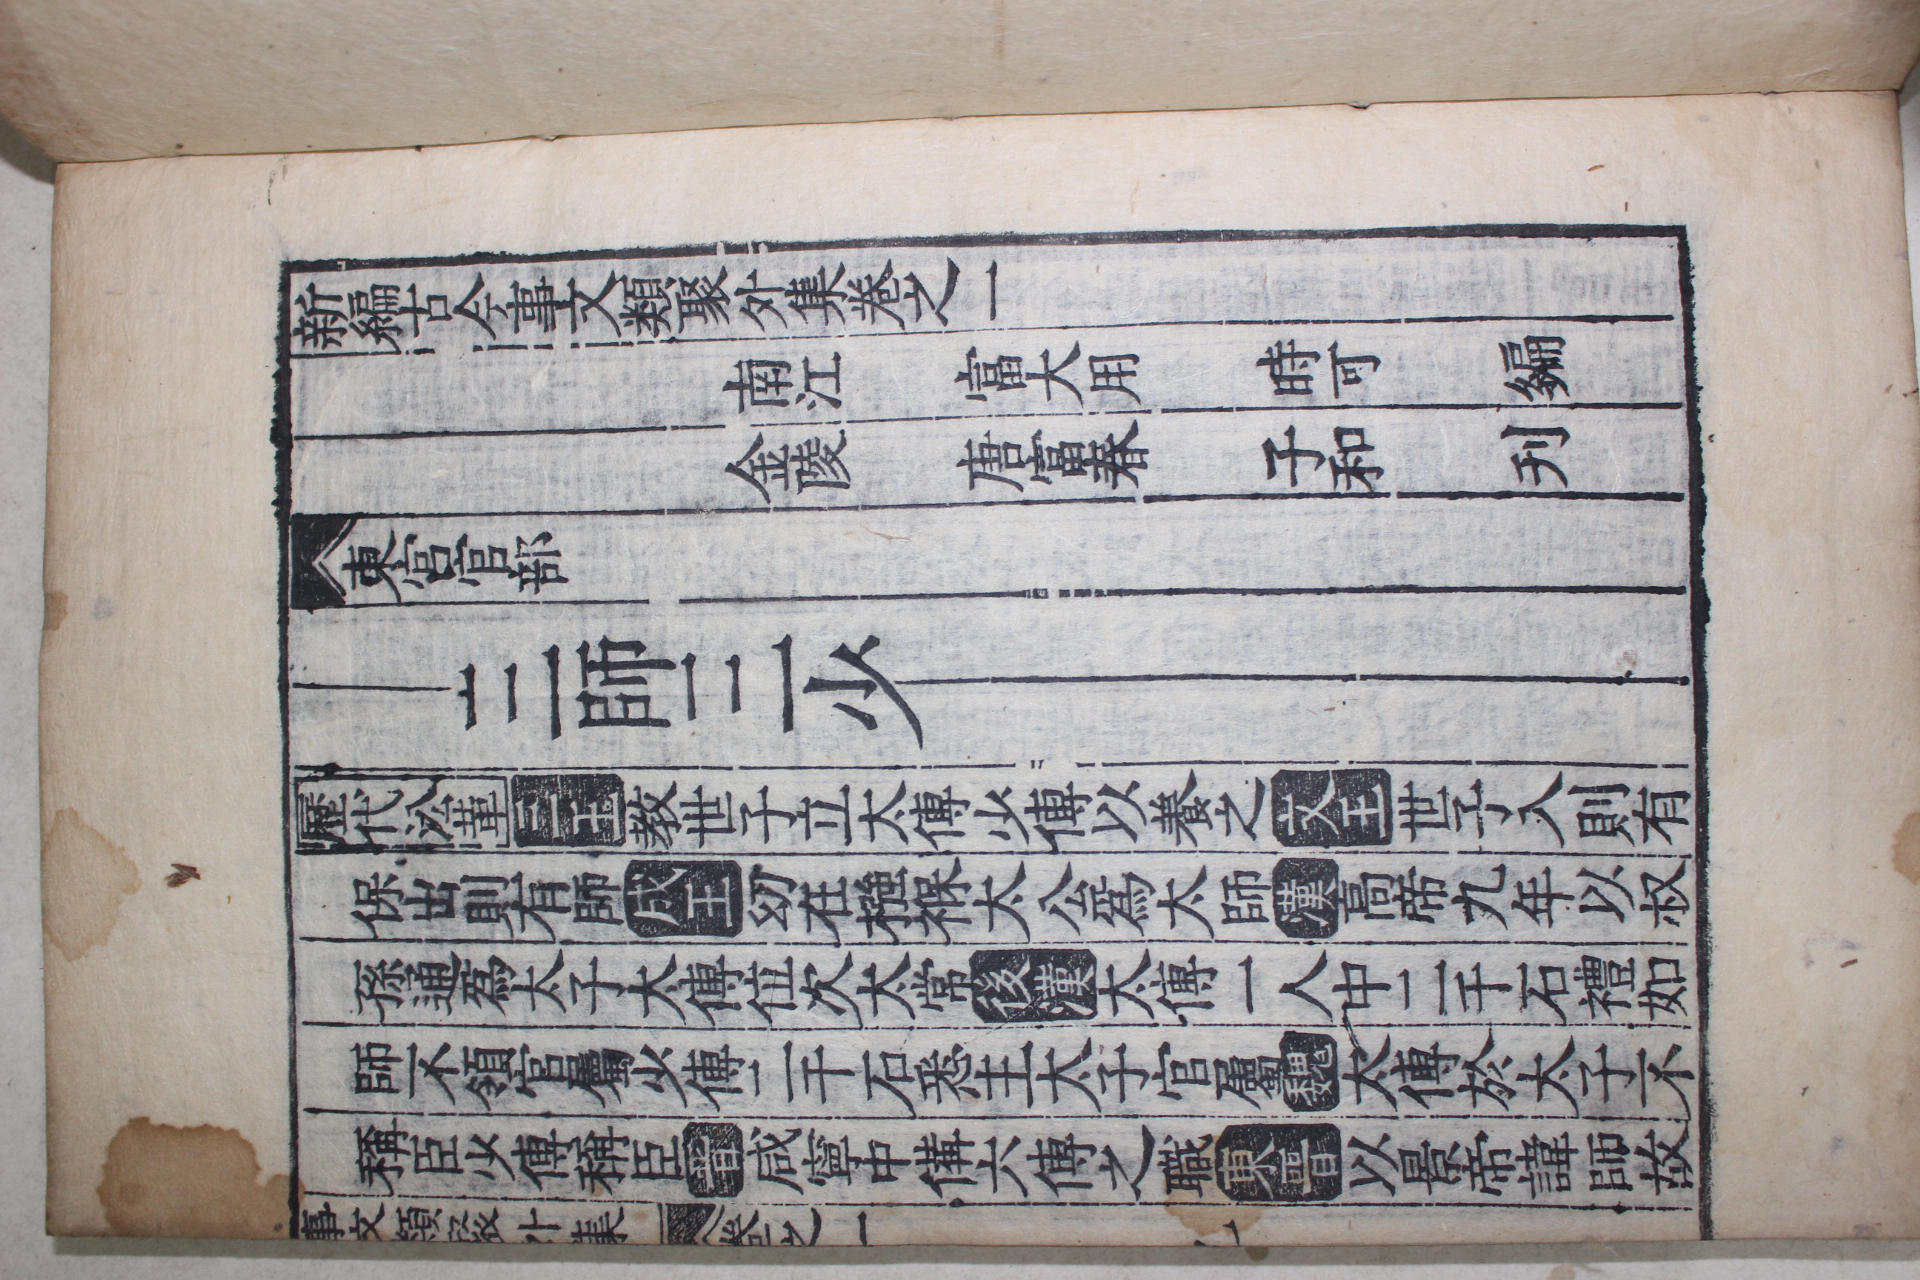 新編古今事文類聚外集卷之一
南江 富大用 時可 編
金陵 唐富春 子和 刋
東宮官部
三師三少
歷代沿革 三王教世子立太傅少傅以養之文王世子入則有
保出則有師成王幼在襁褓太公爲太師漢高帝九年以叔
孫通爲太子太傅位次太常後漢太傅一人中二千石禮如
師不領官屬少傅二千石悉主太子官屬魏太傅於太子不
稱臣少傅稱臣晉咸寧中備六傅之職東晉以景帝諱師故
事文類聚外集 卷之一